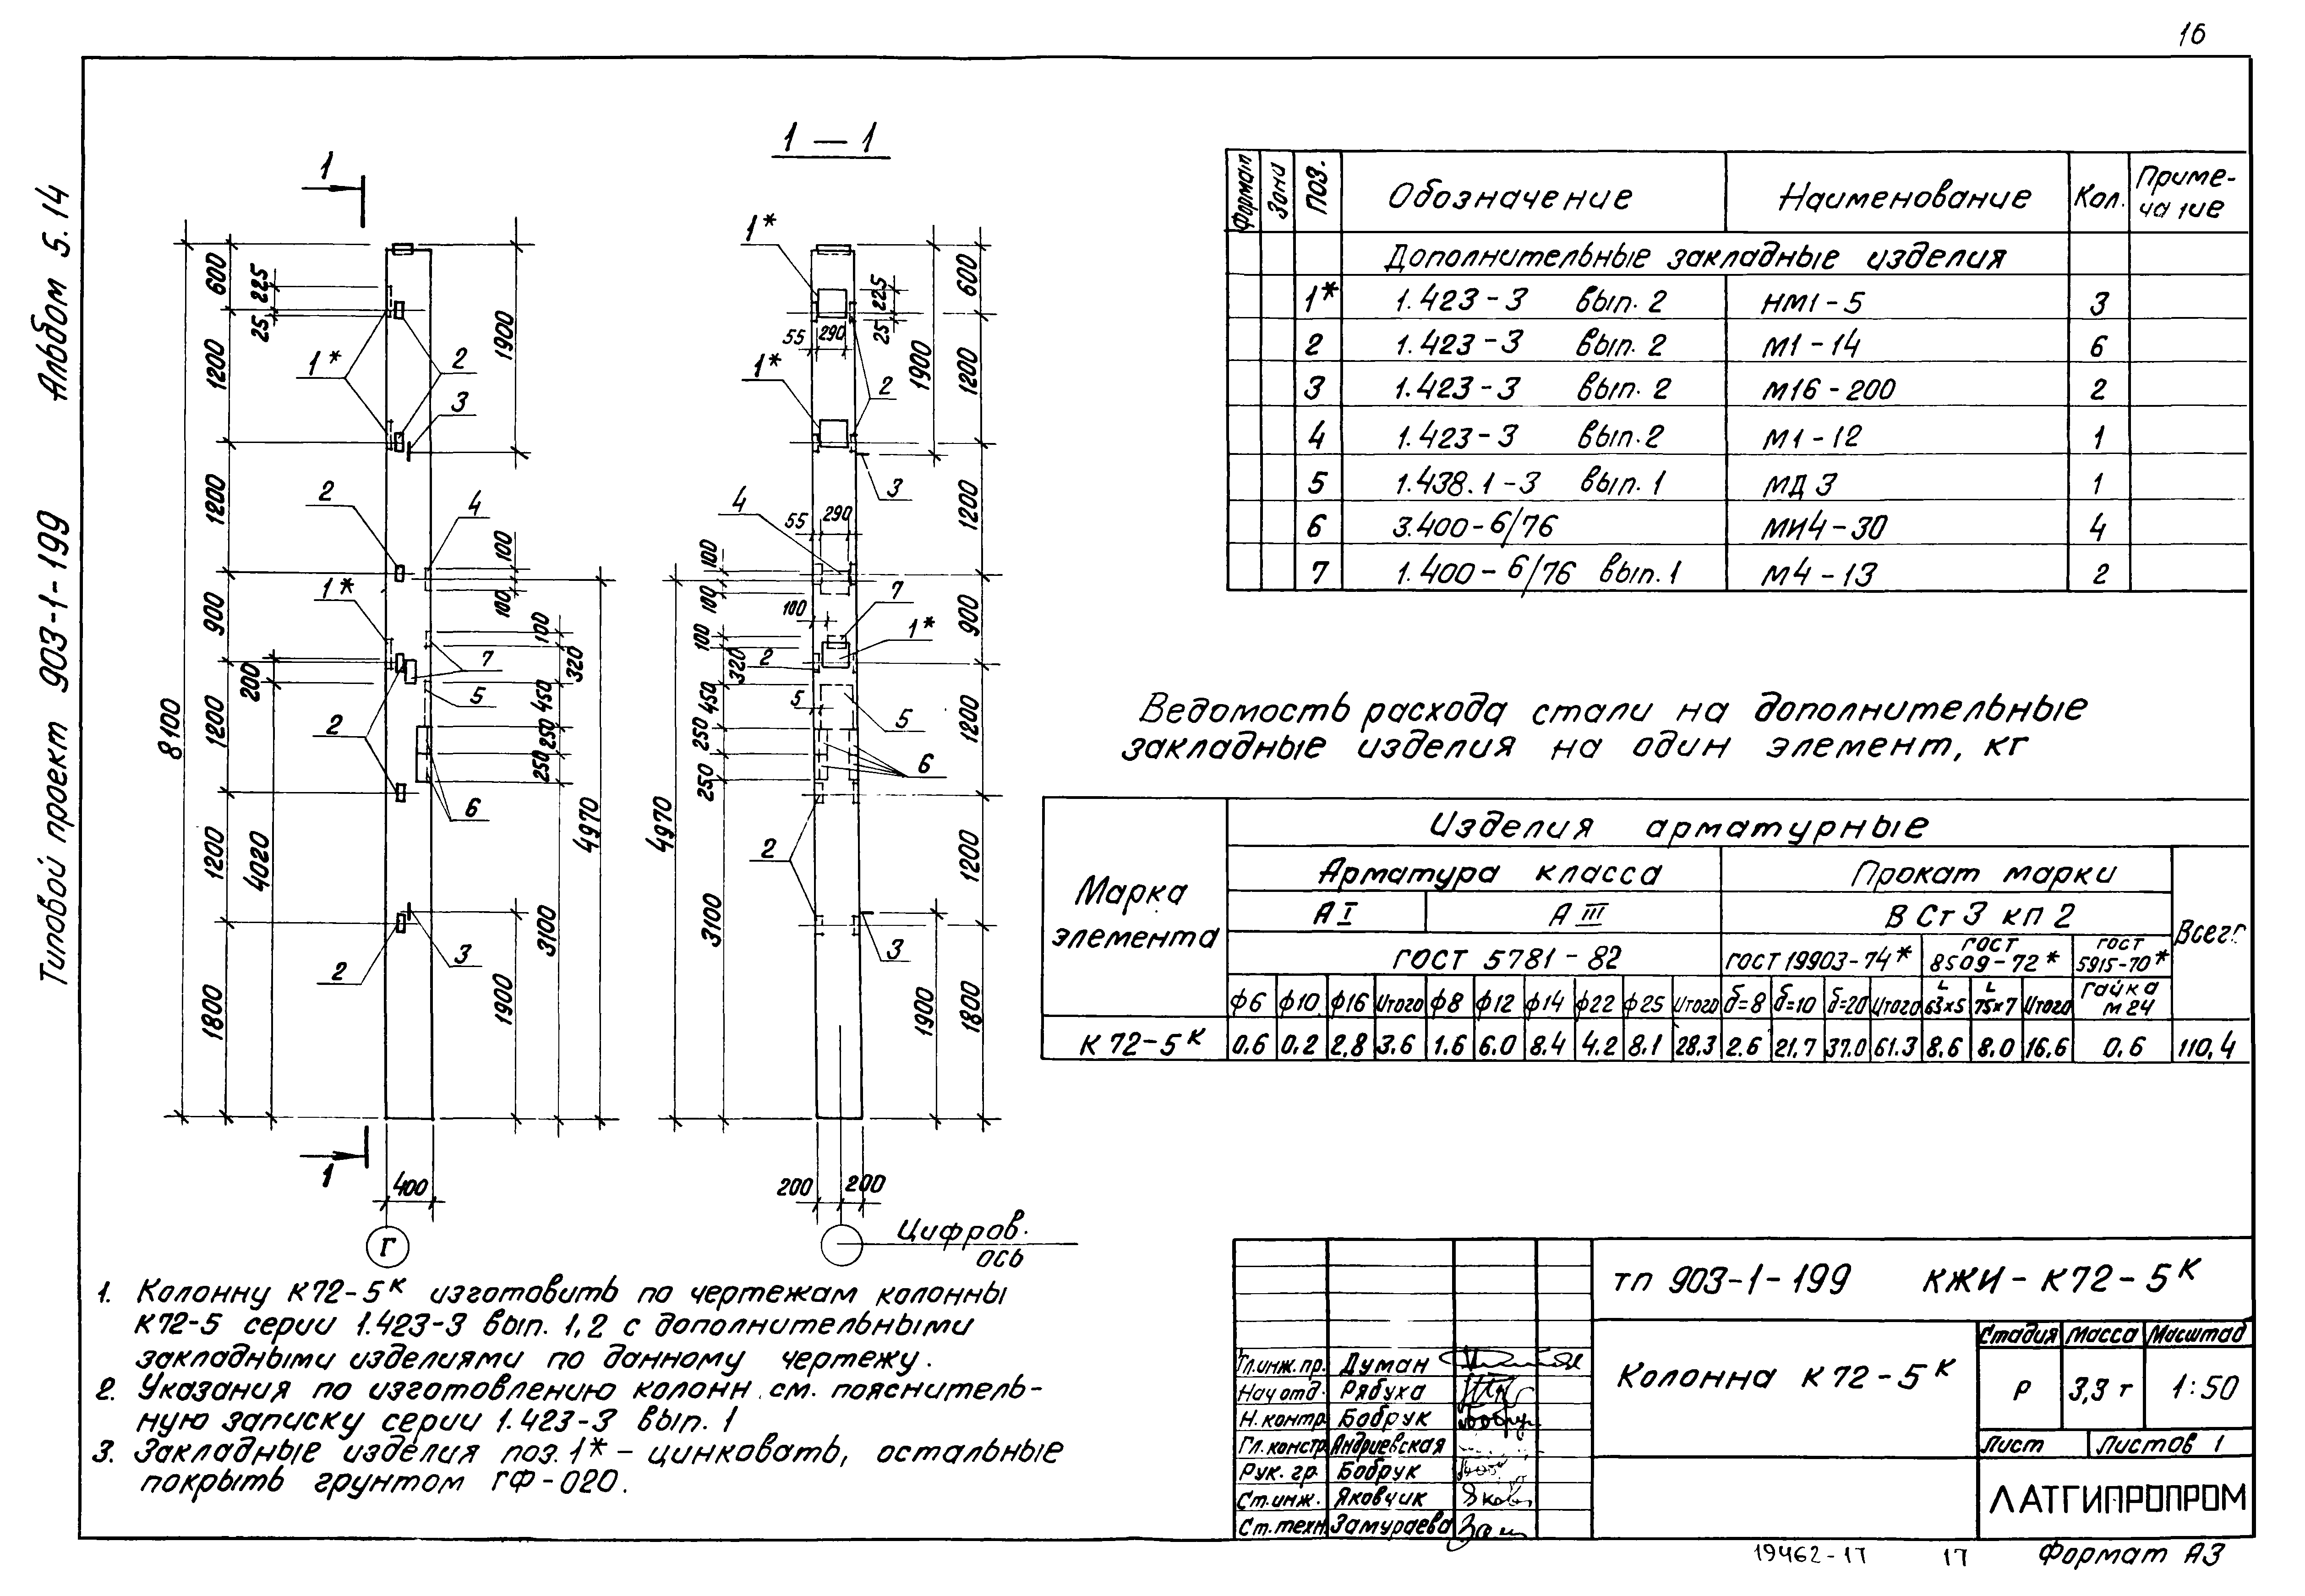 16
Типовой проект 903-1-199 Альбом 5.14
1
1 — 1
8100
600
225
25
1200
1200
900
200
1200
4020
1200
1800
1*
2
3
1900
2
4
100
100
1*
7
100
320
5
450
2
250
250
6
4970
3100
3
2
1900
1
400
Г
1*
225
25
600
55
290
1*
2
1900
1200
3
4
55
290
1200
100
100
7
100
1*
900
100
320
2
450
5
5
250
6
250
1200
4970
2
1200
3100
3
1900
1800
200
200
Цифров.
ось
Формат Зона Поз. Обозначение Наименование Кол. Приме-
чание
Дополнительные закладные изделия
1* 1.423-3 вып. 2 НМ1-5 3
2 1.423-3 вып. 2 М1-14 6
3 1.423-3 вып. 2 М16-200 2
4 1.423-3 вып. 2 М1-12 1
5 1.438.1-3 вып. 1 МД 3 1
6 3.400-6/76 МИ4-30 4
7 1.400-6/76 вып. 1 М4-13 2
Ведомость расхода стали на дополнительные
закладные изделия на один элемент, кг
Марка
элемента
Изделия арматурные
Арматура класса Прокат марки
А I А III В Ст 3 кп 2 Всего
ГОСТ 5781-82 ГОСТ 19903-74* ГОСТ
8509-72* ГОСТ
5915-70*
ф6 ф10 ф16 Итого ф8 ф12 ф14 ф22 ф25 Итого δ=8 δ=10 δ=20 Итого L
63×5 L
75×7 Итого Гайка
М24
К 72-5К 0.6 0.2 2.8 3.6 1.6 6.0 8.4 4.2 8.1 28.3 2.6 21.7 37.0 61.3 8.6 8.0 16.6 0.6 110,4
1. Колонну К72-5К изготовить по чертежам колонны
К72-5 серии 1.423-3 вып. 1,2 с дополнительными
закладными изделиями по данному чертежу.
2. Указания по изготовлению колонн см. пояснитель-
ную записку серии 1.423-3 вып. 1
3. Закладные изделия поз. 1* - цинковать, остальные
покрыть грунтом ГФ-020.
ТП 903-1-199 КЖИ-К72-5К
Колонна К 72-5К
Стадия Масса Масштаб
Р 3,3 т 1:50
Лист Листов 1
ЛАТГИПРОПРОМ
Гл.инж.пр. Думан
Нач отд. Рябуха
Н.контр. Бобрук
Гл.констр. Андриевская
Рук. гр. Бобрук
Ст.инж. Яковчик
Ст.техн. Замураева
19462-17 17 Формат А3